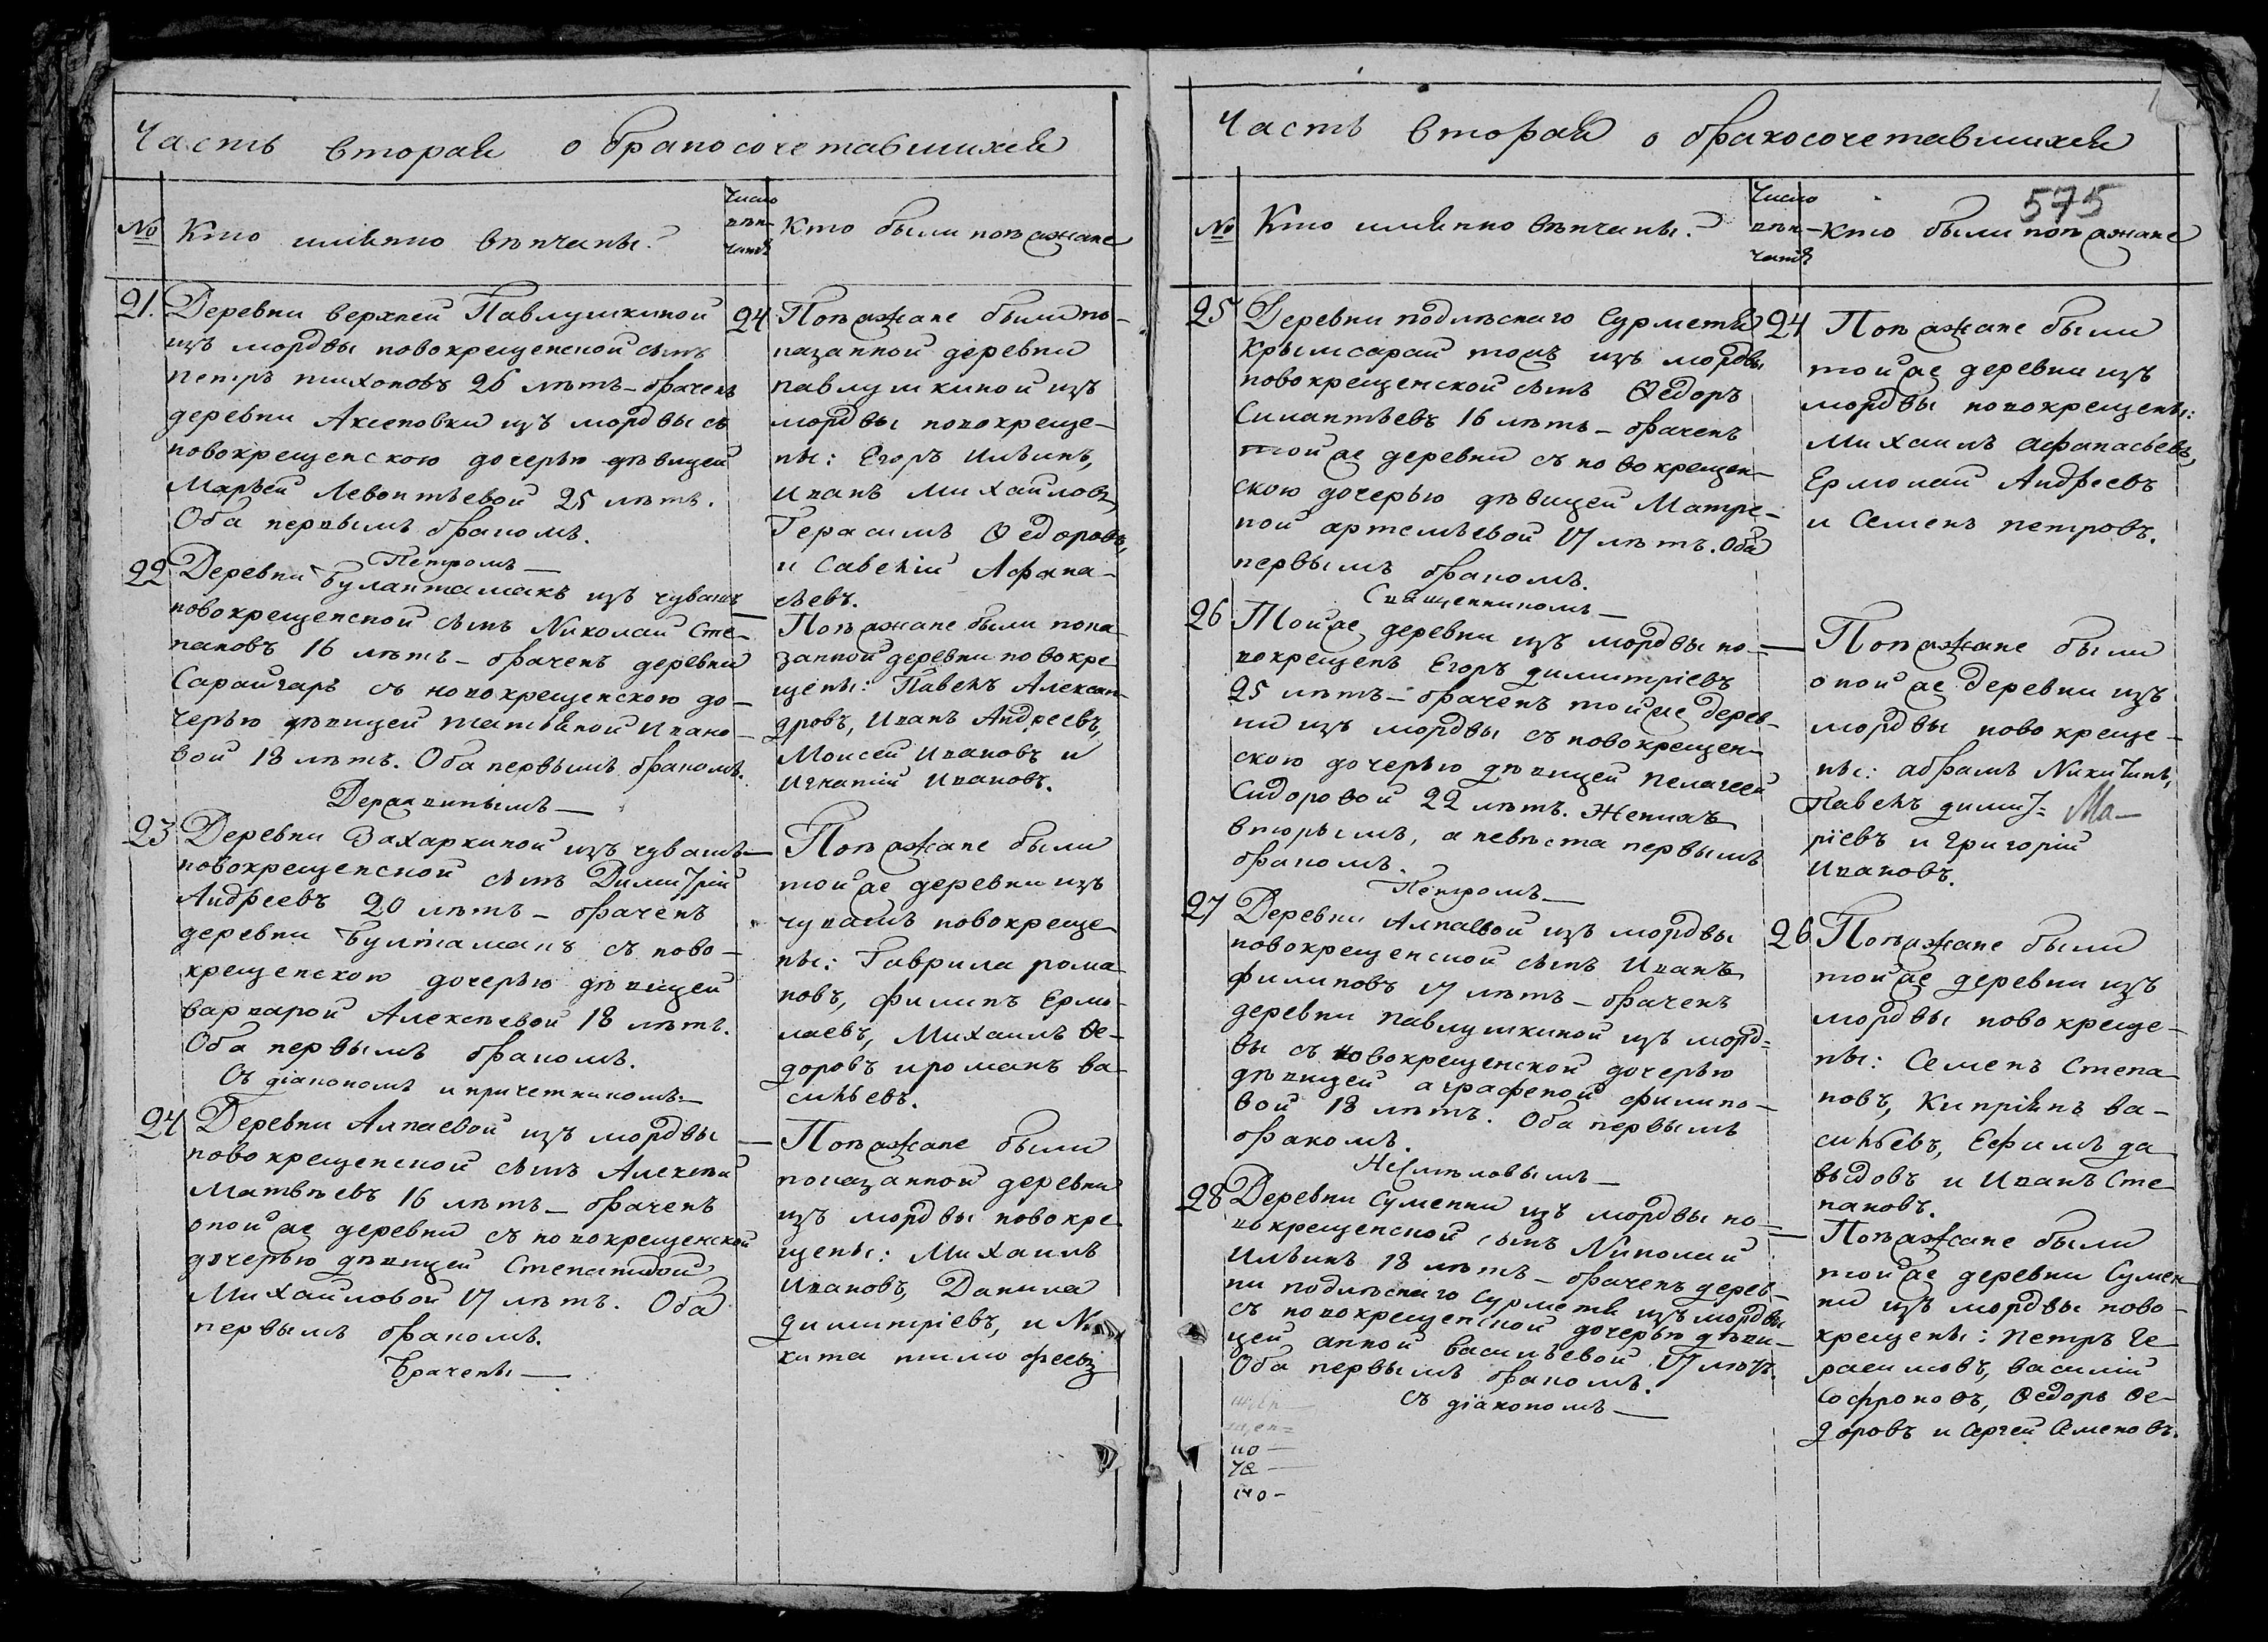 Часть вторая о бракосочетавшихся
№
Кто имянно вѣнчаны?
Число
вѣн-
чанія
Кто были поѣзжане
21.
Деревни верхней Павлушкиной
изъ мордвы новокрещенской сынъ
петръ тихоновъ 26 лѣтъ – браченъ
деревни Аксеновки изъ мордвы съ
новокрещенскою дочерью дѣвицей
Марьей Левонтьевой 25 лѣтъ.
Оба первымъ бракомъ.
Петромъ —
24
Поѣзжане были по-
казанной деревни
павлушкиной изъ
мордвы новокреще-
ны: Егоръ Ильинъ,
Иванъ Михаиловъ,
Герасимъ Ѳедоровъ,
и Савелій Афана-
сьевъ.
22
Деревни Булантамакъ изъ чувашъ
новокрещенской сынъ Николай Сте-
пановъ 16 лѣтъ – браченъ деревни
Сарайгиръ съ новокрещенскою до-
черью дѣвицей татьяной Ивано-
вой 18 лѣтъ. Оба первымъ бракомъ.
—
Поѣзжане были пока-
занной деревни новокре
щены: Павелъ Алексан-
дровъ, Иванъ Андреевъ,
Моисей Ивановъ и
Игнатій Ивановъ.
23
Деревни Захаркиной изъ чувашъ
новокрещенской сынъ Димитрій
Андреевъ 20 лѣтъ – браченъ
деревни Бултамакъ съ ново-
крещенскою дочерью дѣвицей
варварой Алексѣевой 18 лѣтъ.
Оба первымъ бракомъ.
Съ діакономъ и причетникомъ —
—
Поѣзжане были
той же деревни изъ
чувашъ новокреще
ны: Гаврила рома
новъ, филипъ Ермо-
лаевъ, Михаилъ Ѳе-
доровъ и романъ ва-
сильевъ.
24
Деревни Алпаевой изъ мордвы
новокрещенской сынъ Алексѣй
Матвѣевъ 16 лѣтъ – браченъ
оной же деревни съ новокрещенской
дочерью дѣвицей Степанидой
Михаиловой 17 лѣтъ. Оба
первымъ бракомъ.
Брачены —
—
Поѣзжане были
показанной деревни
изъ мордвы новокре
щены: Михаилъ
Ивановъ, Данила
димитріевъ, и Ни
кита тимофеевъ
Часть вторая о бракосочетавшихся
575
№
Кто имянно вѣнчаны?
Число
вѣн-
чанія
Кто были поѣзжане
25
Деревни подлѣснаго Сурметя
Крымсарай тожъ изъ мордвы
новокрещенской сынъ Ѳедоръ
Силантьевъ 16 лѣтъ – браченъ
той же деревни съ новокрещен-
скою дочерью дѣвицей Матре-
ной артемьевой 17 лѣтъ. Оба
первымъ бракомъ.
Священникомъ —
24
Поѣзжане были
той же деревни изъ
мордвы новокрещены:
Михаилъ афанасьевъ,
Ермолай Андреевъ
и Семенъ петровъ.
26
Той же деревни изъ мордвы но-
вокрещенъ Егоръ димитріевъ
25 лѣтъ – браченъ той же дерев-
ни изъ мордвы съ новокрещен
скою дочерью дѣвицей пелагеей
Сидоровой 22 лѣтъ. Женихъ
вторымъ, а невѣста первымъ
бракомъ.
Петромъ —
—
Поѣзжане были
оной же деревни изъ
мордвы новокреще-
ны: абрамъ Никитинъ,
павелъ димит- Ма—
ріевъ и григорій
Ивановъ.
27
Деревни Алпаевой изъ мордвы
новокрещенской сынъ Иванъ
филиповъ 17 лѣтъ – браченъ
деревни павлушкиной изъ морд-
вы съ новокрещенской дочерью
дѣвицей аграфеной филипо-
вой 18 лѣтъ. Оба первымъ
бракомъ.
26
Поѣзжане были
той же деревни изъ
мордвы новокреще-
ны: Семенъ Степа
новъ, Кипріянъ ва-
сильевъ, Ефимъ да
выдовъ и Иванъ Сте
пановъ.
28
Деревни Суменки изъ мордвы но-
вокрещенской сынъ Николай
Ильинъ 18 лѣтъ – браченъ дерев-
ни подлѣснаго Сурметя изъ мордвы
съ новокрещенской дочерью дѣви-
цей анной васильевой 17 лѣтъ.
Оба первымъ бракомъ.
съ діакономъ —
—
Поѣзжане были
той же деревни Сумен
ки изъ мордвы ново-
крещены: петръ ге
расимовъ, василій
Софроновъ, Ѳедоръ Ѳе-
доровъ и Сергей Семеновъ.